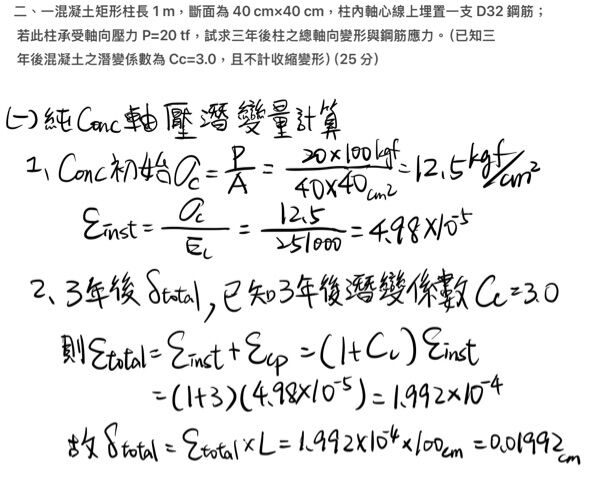 二、一混凝土矩形柱長 1 m，斷面為 40 cm×40 cm，柱內軸心線上埋置一支 D32 鋼筋；
若此柱承受軸向壓力 P=20 tf，試求三年後柱之總軸向變形與鋼筋應力。(已知三
年後混凝土之潛變係數為 Cc=3.0，且不計收縮變形) (25 分)
(一) 純Conc軸壓潛變量計算
1、Conc初始σc = P/A = 20×100kgf/40×40cm2 = 12.5 kgf/cm²
εinst = σc/Ec = 12.5/251000 = 4.98×10⁻⁵
2、3年後δtotal, 已知3年後潛變係數 Cc=3.0
則εtotal = εinst + εcp = (1+Cc) εinst
= (1+3) (4.98×10⁻⁵) = 1.992×10⁻⁴
故 δtotal = εtotal×L = 1.992×10⁻⁴×100cm = 0.01992cm